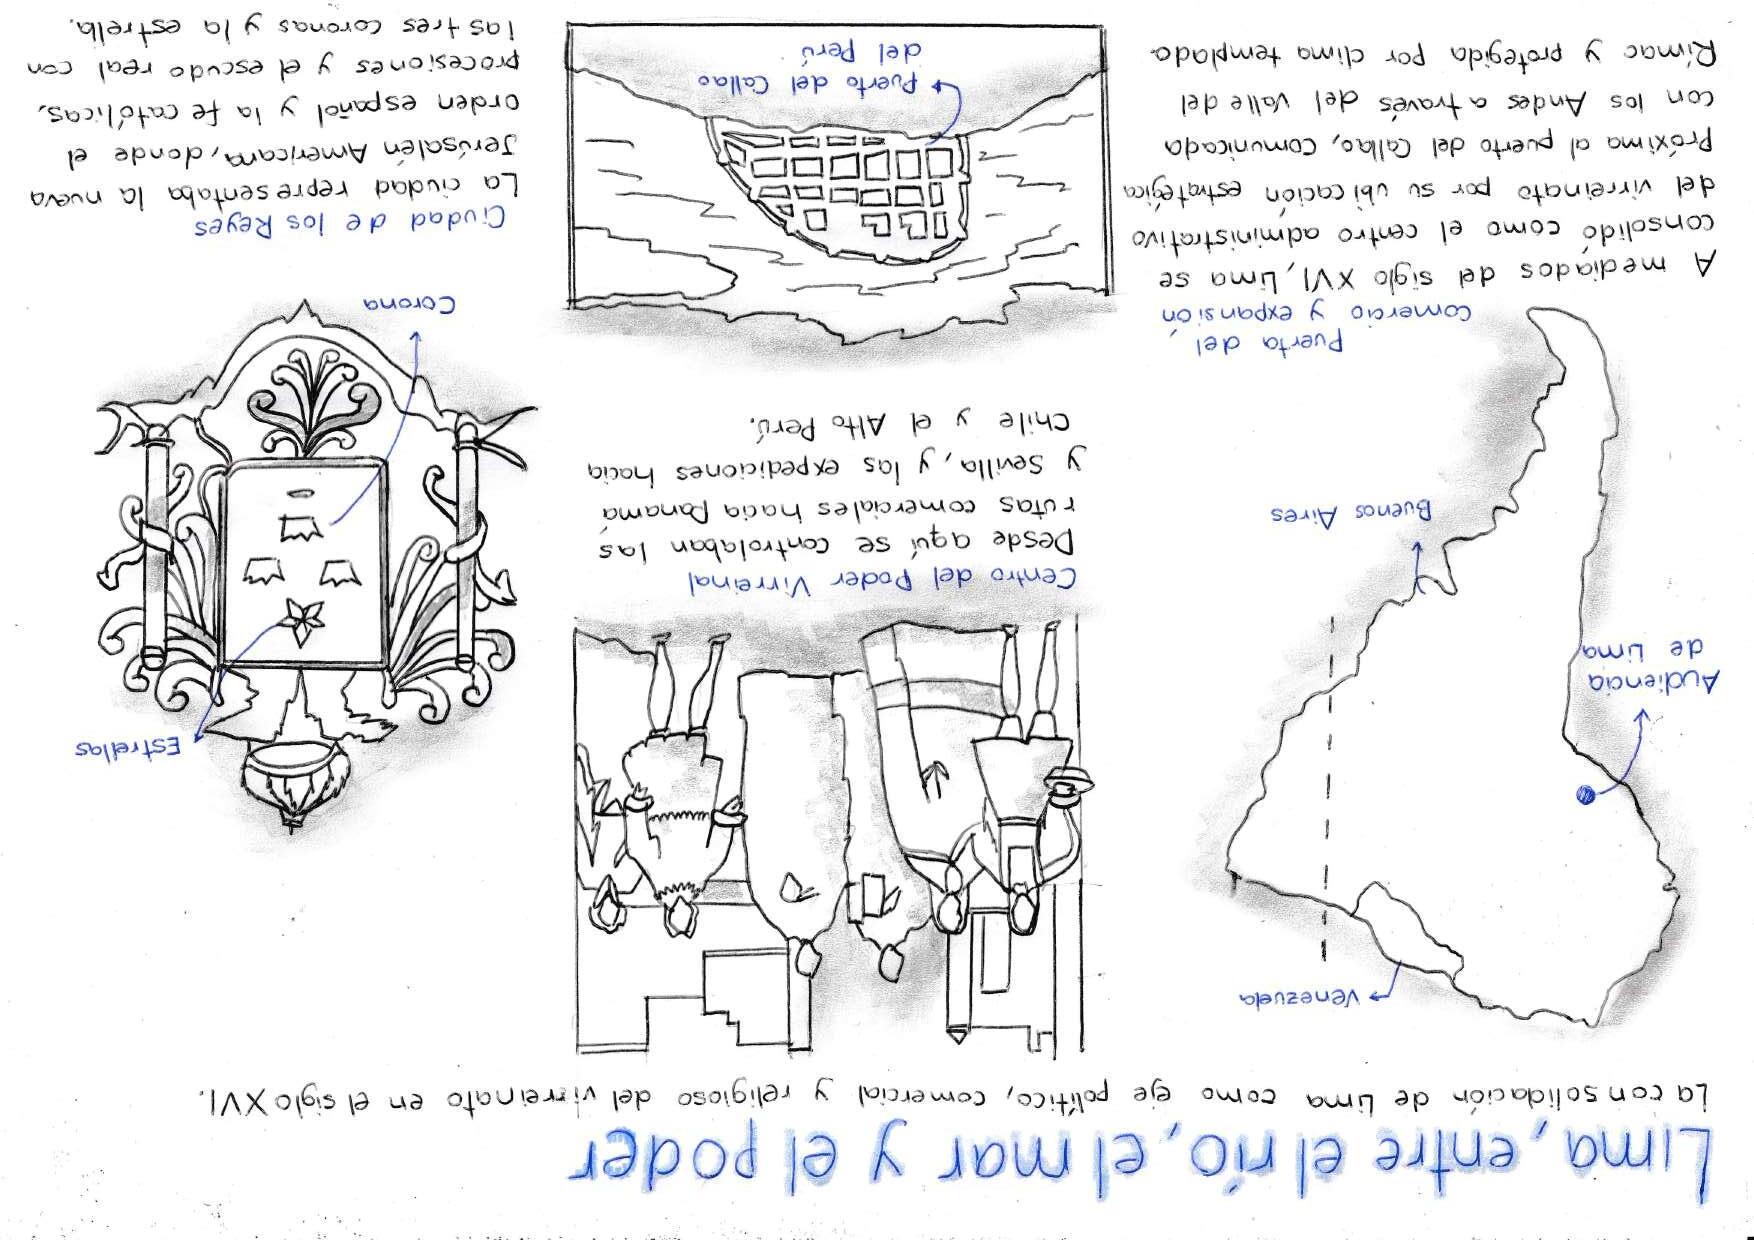 Lima, entre el río, el mar y el poder
La consolidación de Lima como eje político, comercial y religioso del virreinato en el siglo XVI.
Venezuela
Audiencia
de Lima
Buenos Aires
Puerta del
Comercio y expansión
A mediados del siglo XVI, Lima se
consolidó como el centro administrativo
del virreinato por su ubicación estratégica
Próxima al puerto del Callao, Comunicada
con los Andes a través del Valle del
Rímac y protegida por clima templado
Centro del Poder Virreinal
Desde aquí se controlaban las
rutas comerciales hacia Panamá
y Sevilla, y las expediciones hacia
Chile y el Alto Perú.
Puerto del Callao
del Perú
Estrellas
Corona
Ciudad de los Reyes
La ciudad representaba la nueva
Jerúsalén Americana, donde el
orden español y la fe católicas,
procesiones y el escudo real con
las tres coronas y la estrella.